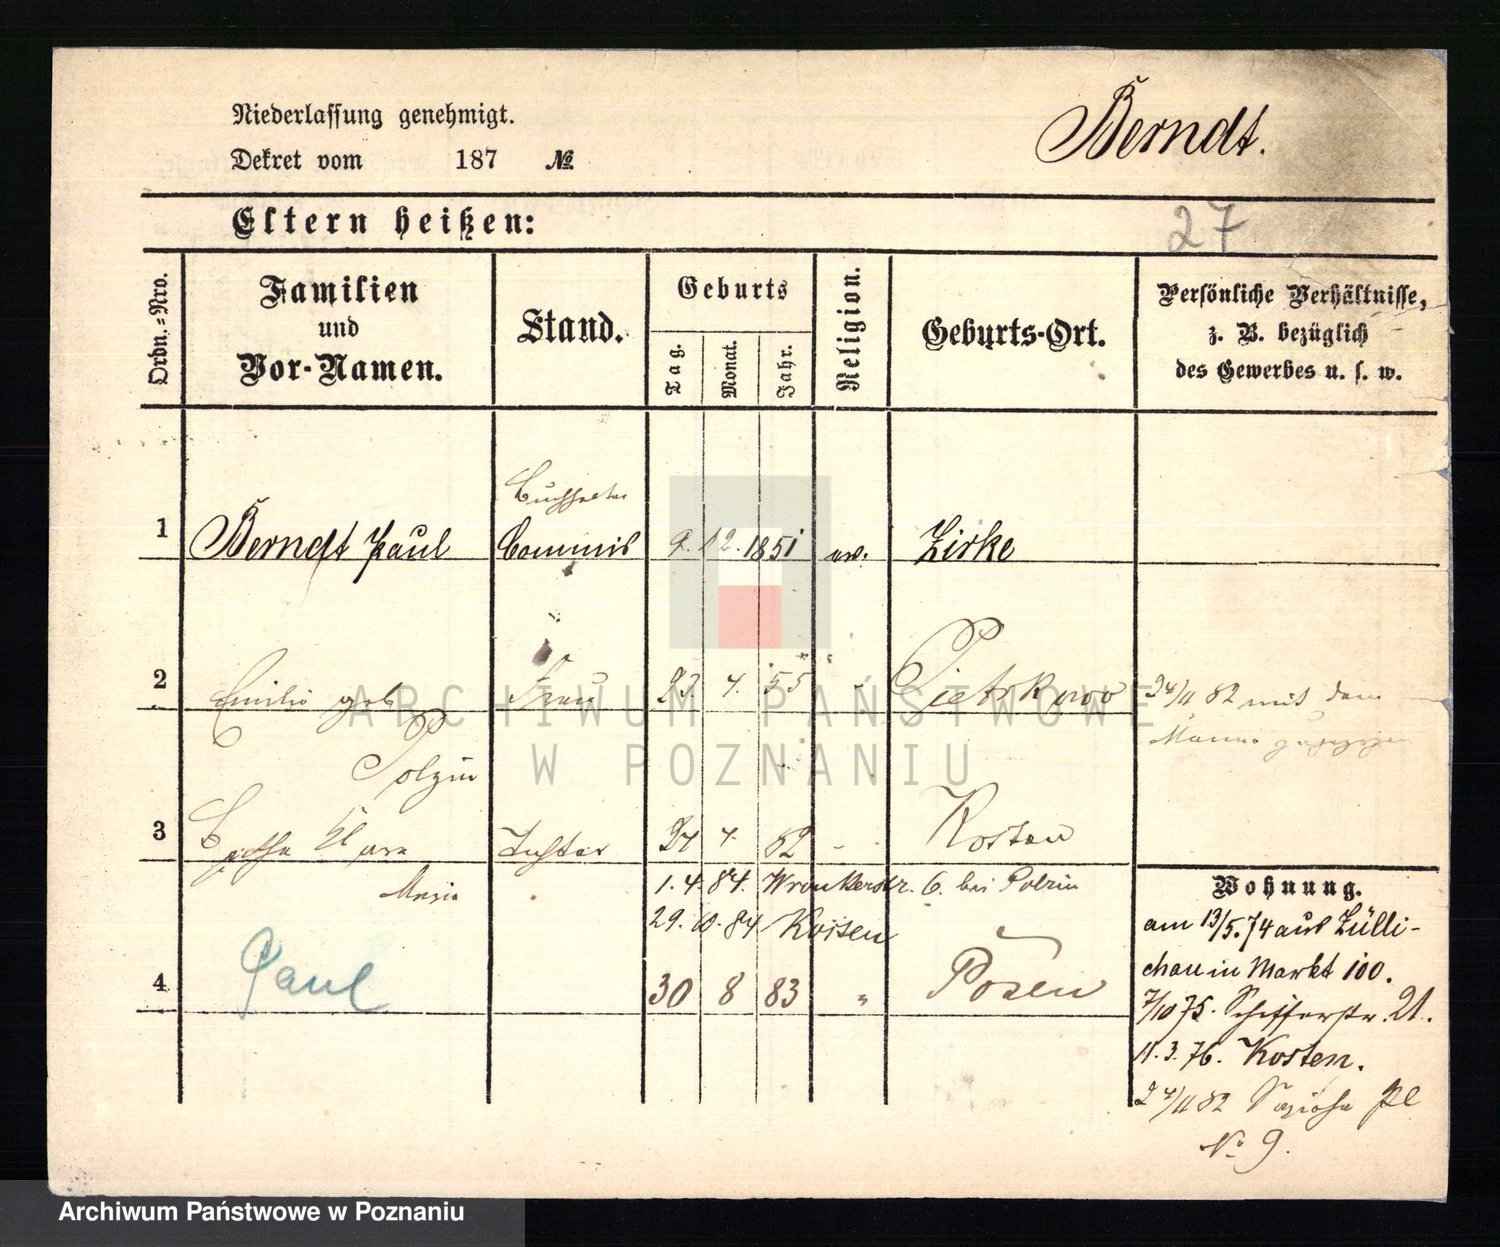 Niederlassung genehmigt.
Berndt.
Dekret vom 187 №
Eltern heißen:
27
Ordn.-Nro.
Familien und Vor-Namen.
Stand.
Geburts
Tag.
Monat.
Jahr.
Religion.
Geburts-Ort.
Persönliche Verhältnisse,
z. B. bezüglich
des Gewerbes u. s. w.
Buchhalter
1 Berndt Paul Commis 9. 12. 1851 ev. Zirke
2 Emilie geb Frau 23 4. 55 Pietrkowo 24/11 82 mit dem
Polzin Manne
3 Clara Tochter 24 4. 82 Kosten
Maria 1. 4. 84. Wronkerstr. 6. bei Polzin
29. 10. 84 Kosten
4 Paul 30 8 83 " Posen
Wohnung.
am 13/5. 74 aus Zülli-
chau in Markt 100.
7/10 75. Schifferstr. 21.
11. 3. 76. Kosten.
24/11 82 Sapieha Pl
No 9.
ARCHIWUM PAŃSTWOWE
W POZNANIU
Archiwum Państwowe w Poznaniu